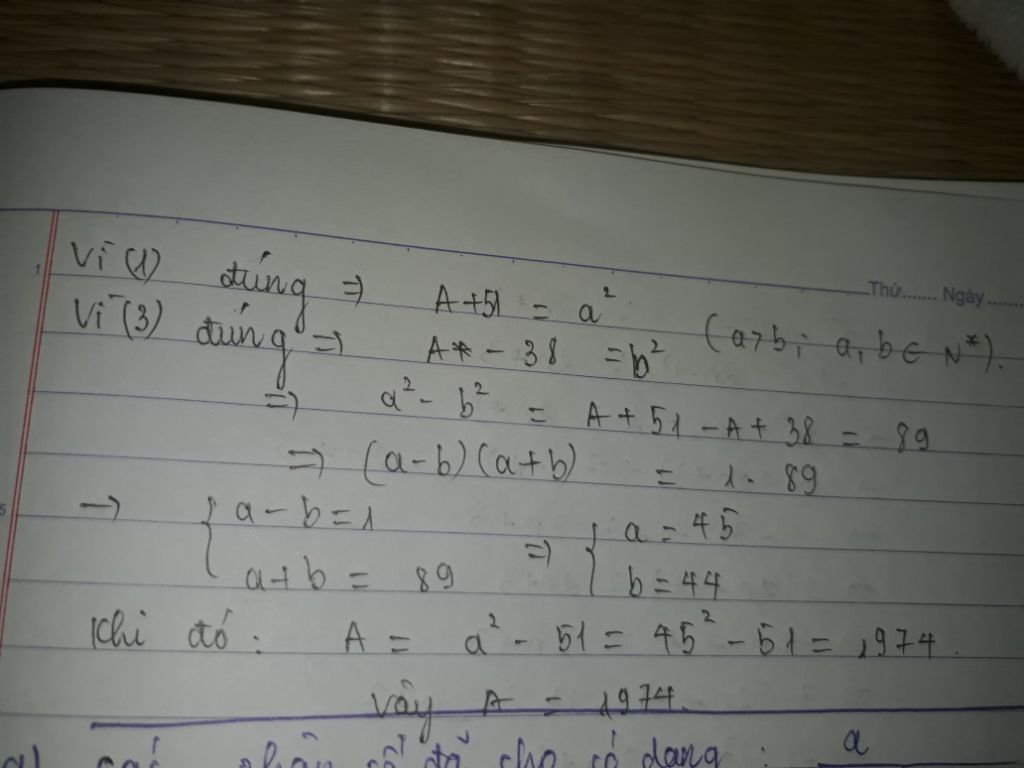 Thứ....... Ngày.......
Vì (1) đúng => A+51 = a²
Vì (3) đúng => A* - 38 = b² (a>b; a, b ∈ N*).
=> a² - b² = A + 51 - A + 38 = 89
=> (a-b)(a+b) = 1. 89
→ { a - b = 1 => { a = 45
a+b = 89 b = 44
Khi đó: A = a² - 51 = 45² - 51 = 1974.
Vậy A = 1974.
a) các phân số đã cho có dạng : a